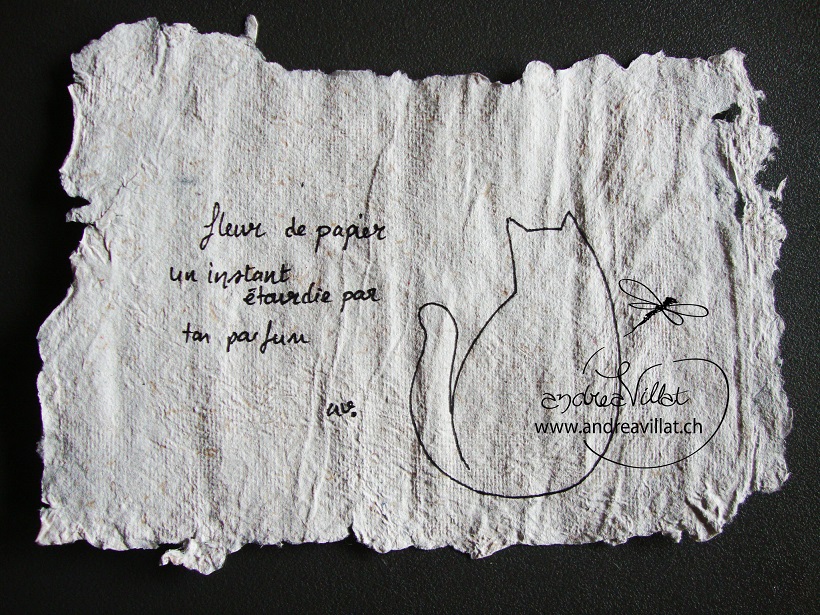 fleur de papier
un instant
étourdie par
ton parfum
av.
andrea Villat
www.andreavillat.ch